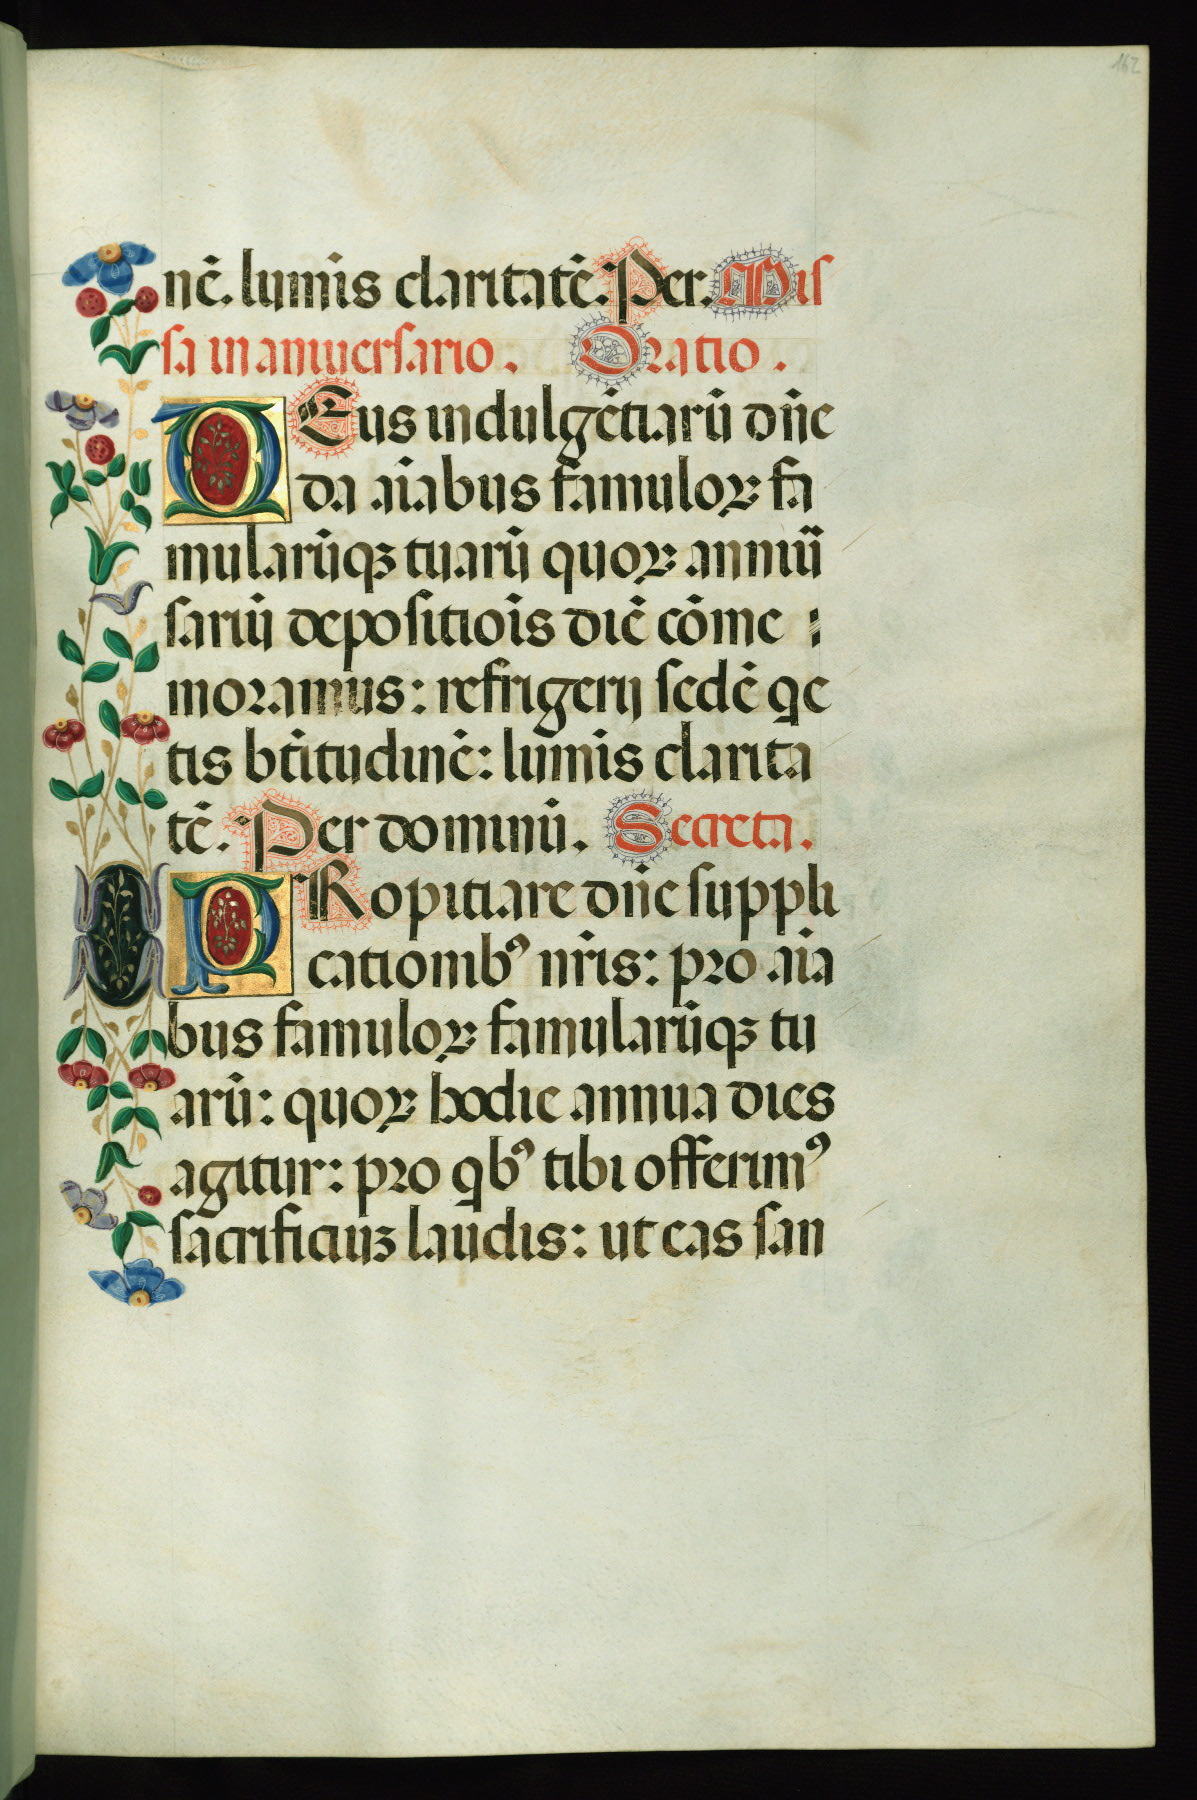 162
nē. lumīs claritatē. Per. Mis
sa in aniuersario. Oratio.
DEus indulgētiarū dn̄e
da aīabus famuloꝝ fa
mularūqꝫ tuarū quoꝝ anniū
sariū depositiōis diē cōme
moramus: refrigerij sedē qe
tis bt̄itudinē: lumīs clarita
tē. Per dominū. Secreta.
PRopitiare dn̄e suppli
cationibꝰ nr̄is: pro aīa
bus famuloꝝ famularūqꝫ tu
arū: quoꝝ hodie annua dies
agitur: pro qbꝰ tibi offerimꝰ
sacrificiuꝫ laudis: ut eas san